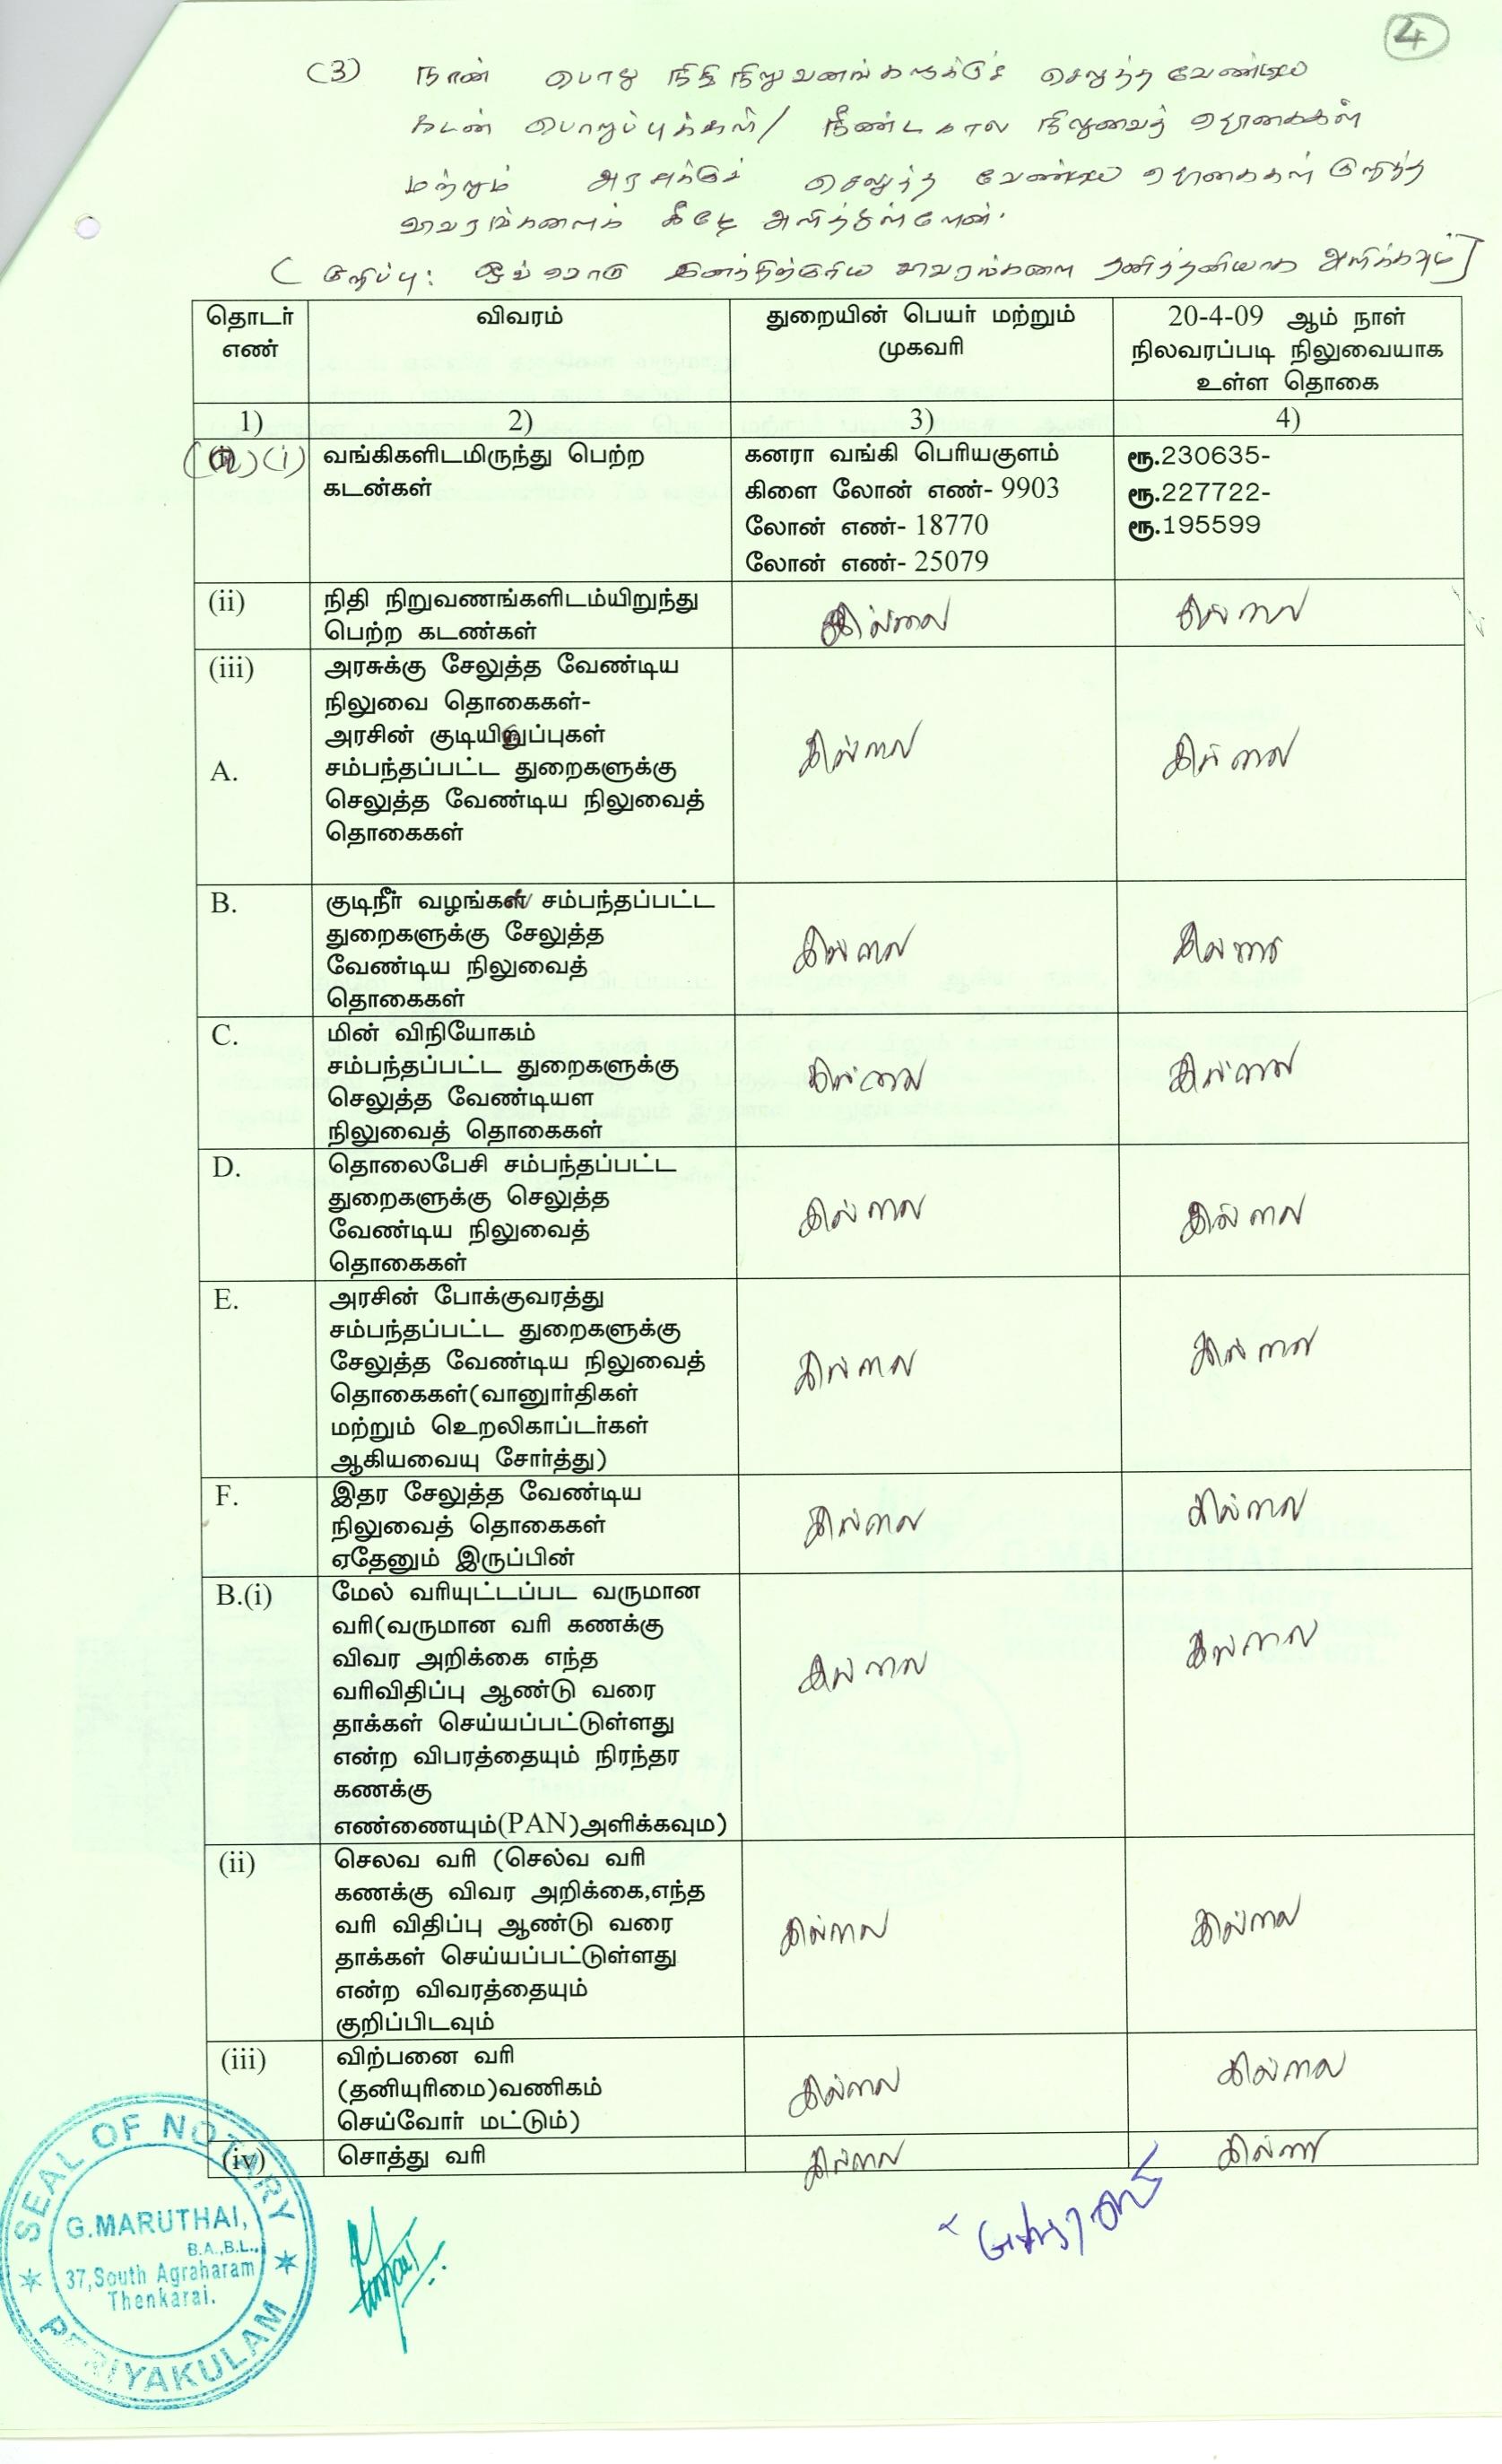 4
(3) நான் பொது நிதி நிறுவனங்களுக்குச் செலுத்த வேண்டிய
கடன் பொறுப்புக்கள்/ நீண்டகால நிலுவைத் தொகைகள்
மற்றும் அரசுக்குச் செலுத்த வேண்டிய தொகைகள் குறித்த
விவரங்களைக் கீழே அளித்துள்ளேன்.
( குறிப்பு: ஒவ்வொரு இனத்திற்குரிய விவரங்களை தனித்தனியாக அளிக்கவும்]
தொடர் எண் விவரம் துறையின் பெயர் மற்றும் முகவரி 20-4-09 ஆம் நாள் நிலவரப்படி நிலுவையாக உள்ள தொகை
1) 2) 3) 4)
(i) வங்கிகளிடமிருந்து பெற்ற கனரா வங்கி பெரியகுளம் ரூ.230635-
கடன்கள் கிளை லோன் எண்- 9903 ரூ.227722-
லோன் எண்- 18770 ரூ.195599
லோன் எண்- 25079
(ii) நிதி நிறுவணங்களிடம்யிறுந்து இல்லை இல்லை
பெற்ற கடண்கள்
(iii) அரசுக்கு சேலுத்த வேண்டிய
நிலுவை தொகைகள்-
அரசின் குடியிறுப்புகள் இல்லை இல்லை
A. சம்பந்தப்பட்ட துறைகளுக்கு
செலுத்த வேண்டிய நிலுவைத்
தொகைகள்
B. குடிநீர் வழங்கல் சம்பந்தப்பட்ட
துறைகளுக்கு சேலுத்த இல்லை இல்லை
வேண்டிய நிலுவைத்
தொகைகள்
C. மின் விநியோகம்
சம்பந்தப்பட்ட துறைகளுக்கு இல்லை இல்லை
செலுத்த வேண்டியள
நிலுவைத் தொகைகள்
D. தொலைபேசி சம்பந்தப்பட்ட
துறைகளுக்கு செலுத்த இல்லை இல்லை
வேண்டிய நிலுவைத்
தொகைகள்
E. அரசின் போக்குவரத்து
சம்பந்தப்பட்ட துறைகளுக்கு
சேலுத்த வேண்டிய நிலுவைத் இல்லை இல்லை
தொகைகள்(வானுார்திகள்
மற்றும் உெறலிகாப்டர்கள்
ஆகியவையு சோர்த்து)
F. இதர சேலுத்த வேண்டிய
நிலுவைத் தொகைகள் இல்லை இல்லை
ஏதேனும் இருப்பின்
B.(i) மேல் வரியுட்டப்பட வருமான
வரி(வருமான வரி கணக்கு
விவர அறிக்கை எந்த இல்லை இல்லை
வரிவிதிப்பு ஆண்டு வரை
தாக்கள் செய்யப்பட்டுள்ளது
என்ற விபரத்தையும் நிரந்தர
கணக்கு
எண்ணையும்(PAN)அளிக்கவும)
(ii) செலவ வரி (செல்வ வரி
கணக்கு விவர அறிக்கை,எந்த
வரி விதிப்பு ஆண்டு வரை இல்லை இல்லை
தாக்கள் செய்யப்பட்டுள்ளது
என்ற விவரத்தையும்
குறிப்பிடவும்
(iii) விற்பனை வரி
(தனியுரிமை)வணிகம் இல்லை இல்லை
செய்வோர் மட்டும்)
(iv) சொத்து வரி இல்லை இல்லை
SEAL OF NOTARY
G.MARUTHAI,
B.A.,B.L.,
37,South Agraharam
Thenkarai.
PERIYAKULAM